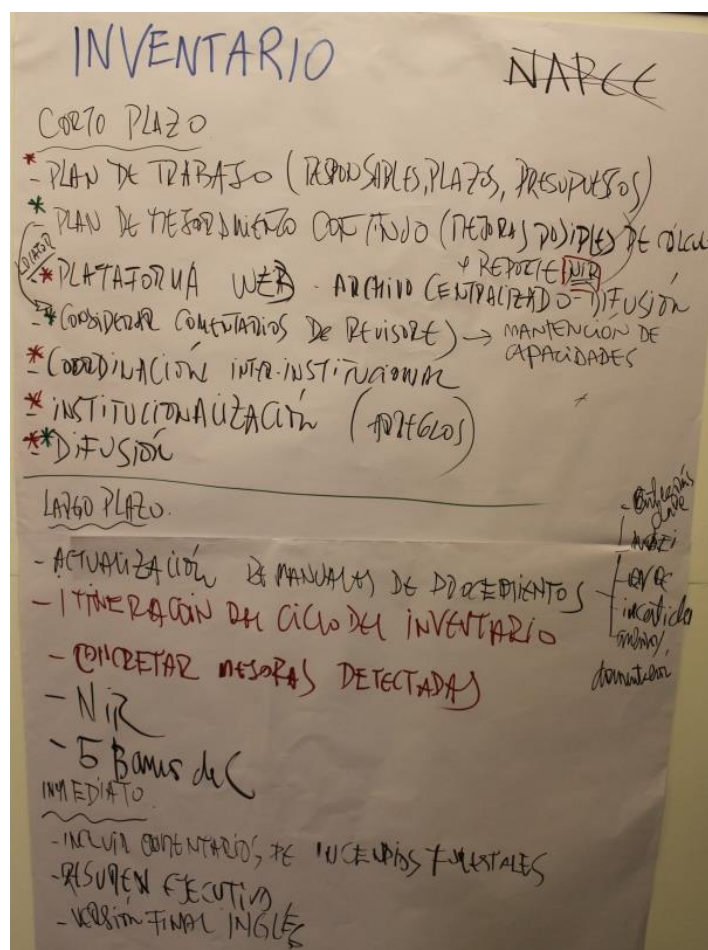 INVENTARIO
NAPCC
CORTO PLAZO
- PLAN DE TRABAJO (RESPONSABLES, PLAZOS, PRESUPUESTOS)
PLAN DE MEJORAMIENTO CONTINUO (MEJORAS POSIBLES DE CÁLCULO
+ REPORTE NIR
* PLATAFORMA WEB - ARCHIVO CENTRALIZADO - DIFUSIÓN
- * CONSIDERAR COMENTARIOS DE REVISORES) → MANTENCIÓN DE
CAPACIDADES
* COORDINACIÓN INTER-INSTITUCIONAL
* INSTITUCIONALIZACIÓN (ARREGLOS)
* * DIFUSIÓN
LARGO PLAZO.
- ACTUALIZACIÓN DE MANUALES DE PROCEDIMIENTOS
- ITINERACIÓN DEL CICLO DEL INVENTARIO
- CONCRETAR MEJORAS DETECTADAS
- NIR
- 5 Bancos de C
INMEDIATO
- INCLUIR COMENTARIOS, DE INCENDIOS FORESTALES
- RESUMEN EJECUTIVO
- VERSIÓN FINAL INGLES